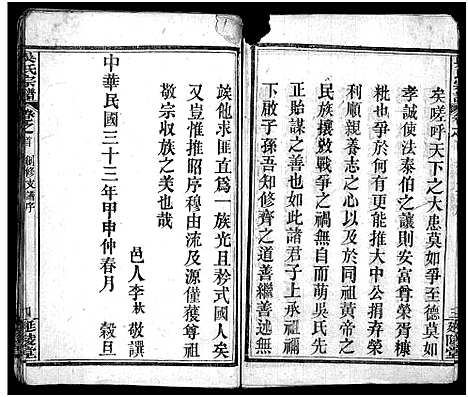 矣嗟呼天下之大患莫如爭至德莫如
李誠使法泰伯之讓則安富尊榮胥糠
粃也爭於何有更能推大中公共弃榮
利順親養志之心以及於同祖黃帝之
民族攘敓戰爭之禍無自而萌吳氏先
正貽謀之善也如此諸君子上承祖宗
下啟子孫吾知修齊之道善繼善述無
吳氏宗譜
卷之首 創修支譜序
四 延陵堂
竢他求匪直爲一族光且矜式國人矣
又豈惟推昭序穆由流及源僅獲尊祖
敬宗收族之美也哉
邑人李秋敬譔
中華民國三十三年甲申仲春月 穀旦